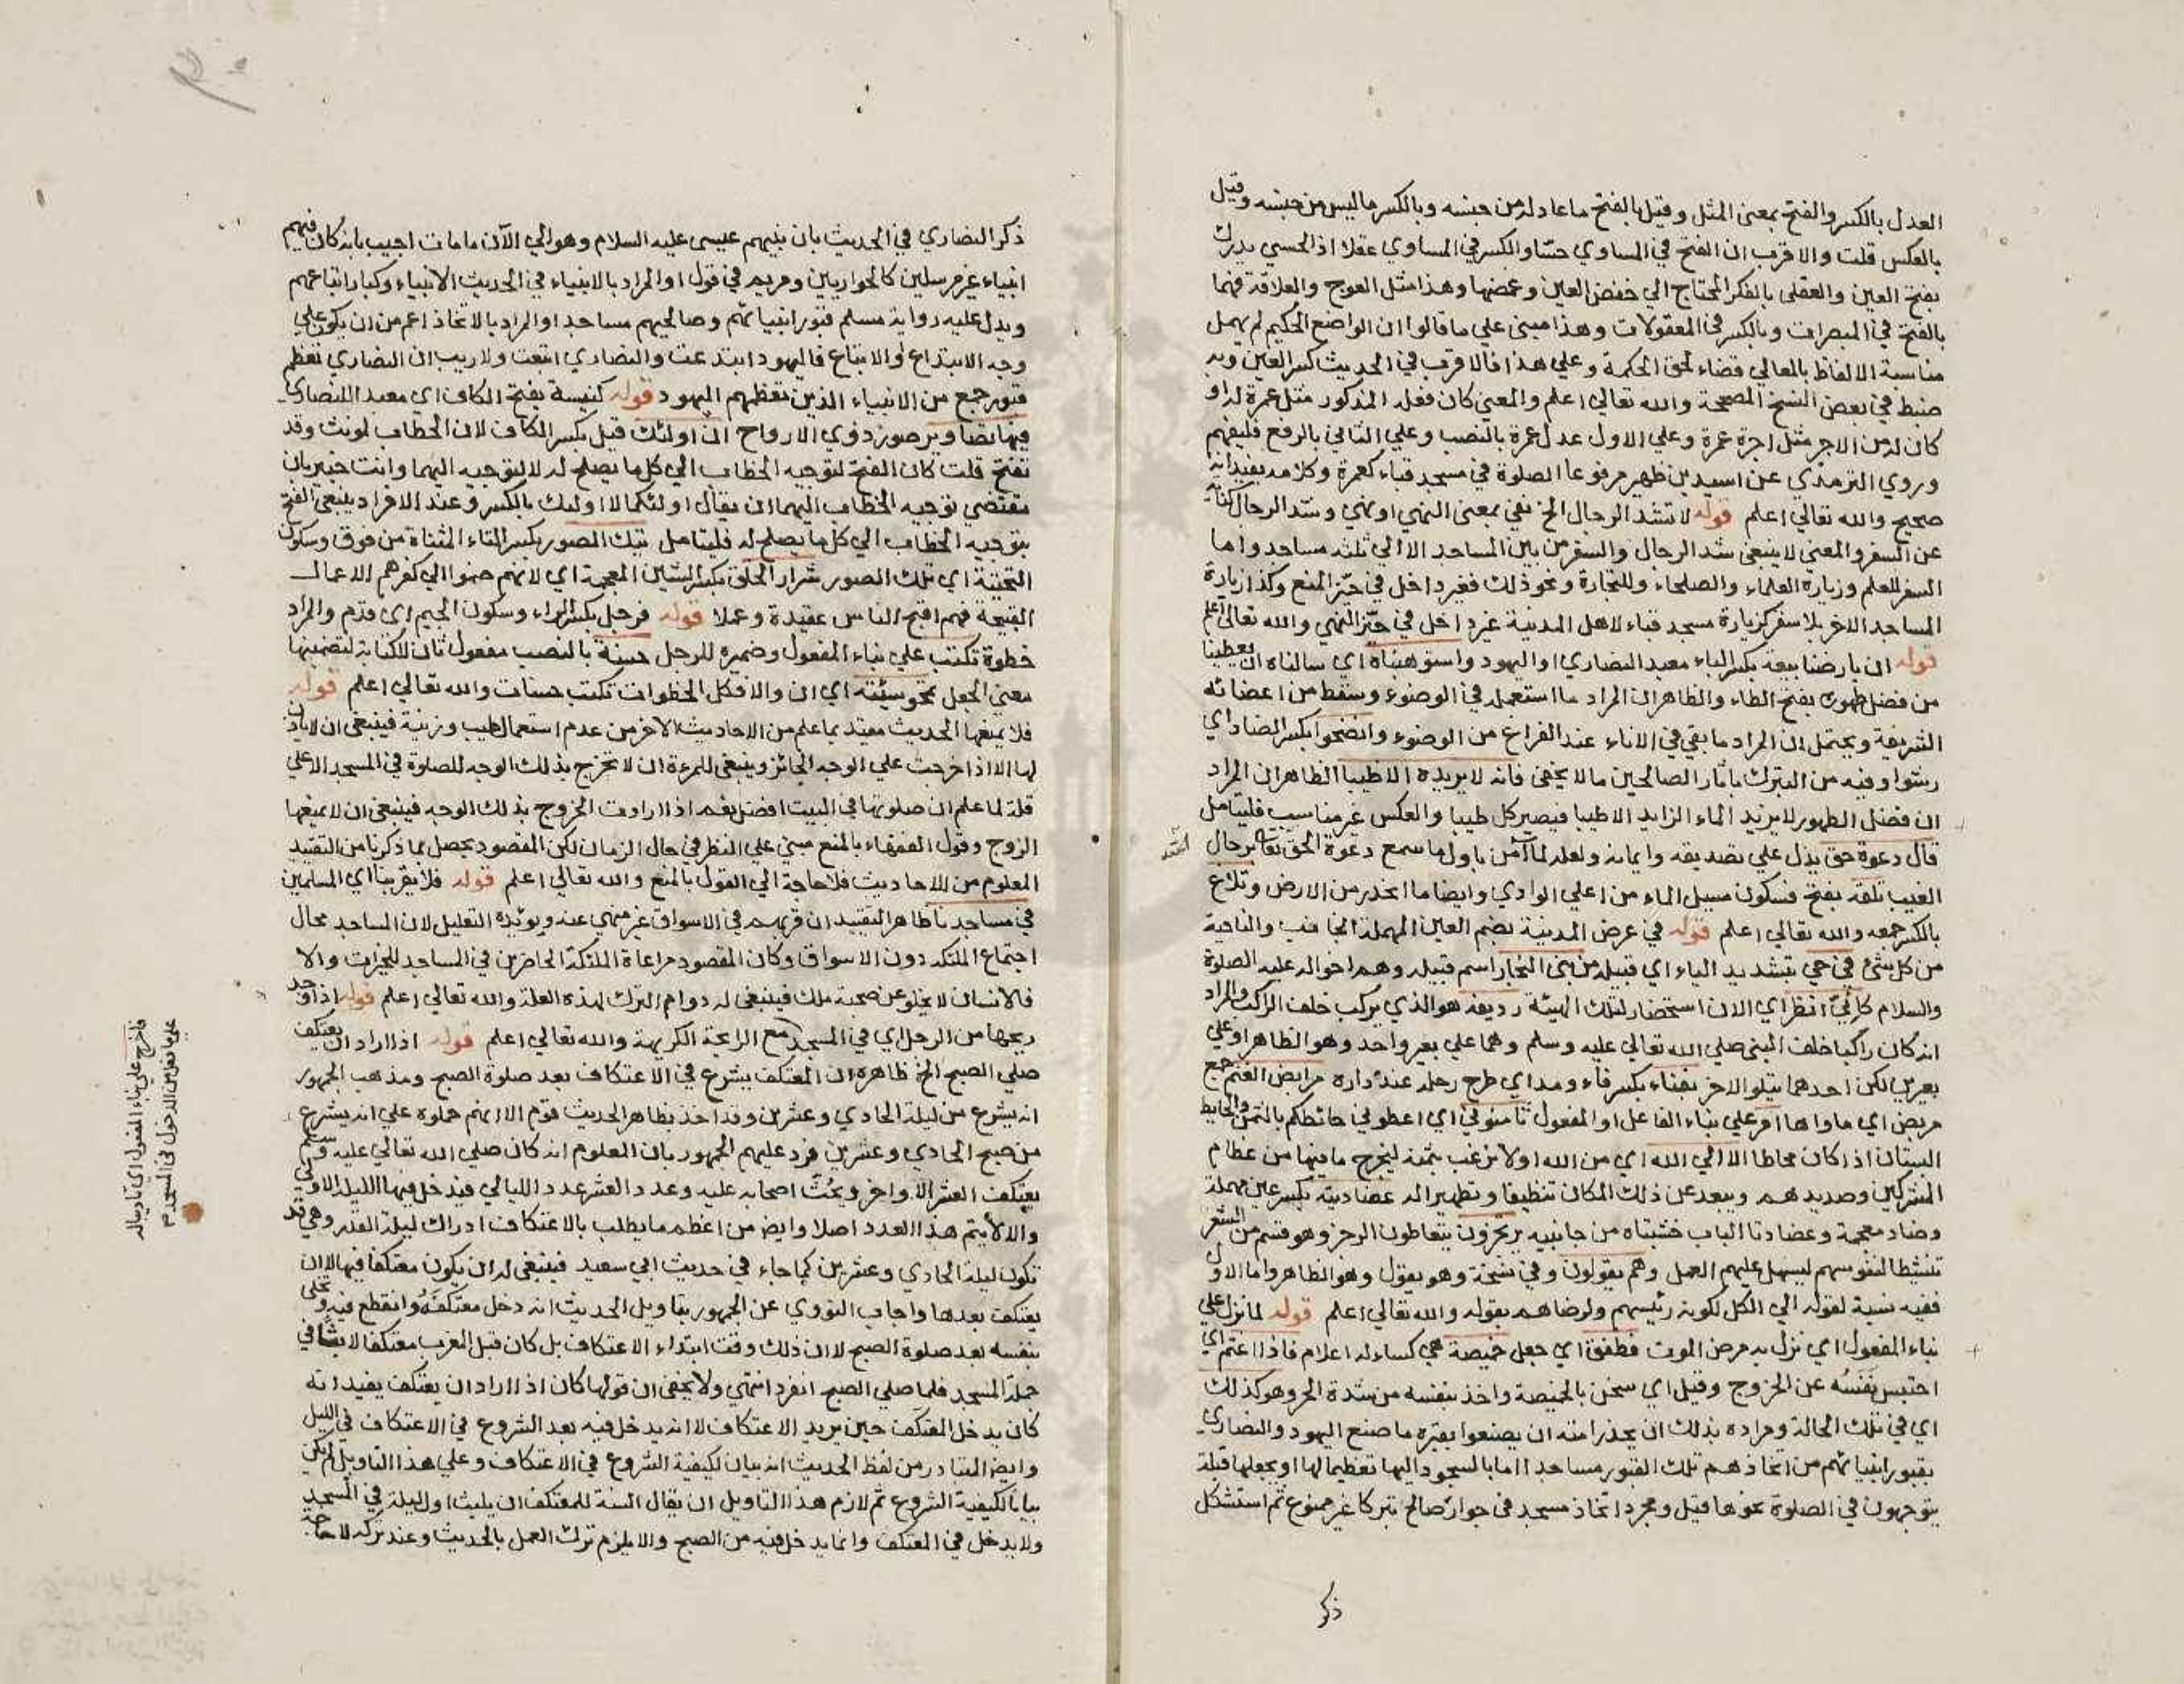 العدل بالكسر والفتح بمعنى المثل وقيل بالفتح ما عادله من جنسه وبالكسر ما ليس من جنسه وقيل
بالعكس قلت والاقرب ان الفتح في المساوي حسّا والكسر في المساوي عقلا اذ الحسي يدرك
بفتح العين والعقلى بالفكر المحتاج الي خفض العين وغمضها وهذا مثل العوج والعلاقة فهما
بالفتح في المبصرات وبالكسر في المعقولات وهذا مبني علي ما قالوا ان الواضع الحكيم لم يهمل
مناسبة الالفاظ بالمعاني قضاء لحق الحكمة وعلي هذا فالاقرب في الحديث كسر العين وبه
ضبط في بعض النسخ المصححة والله تعالي اعلم والمعني كان فعله المذكور مثل عمرة له او
كان له من الاجر مثل اجرة عمرة وعلي الاول عدل عمرة بالنصب وعلي الثاني بالرفع فليفهم
وروي الترمذي عن اسيد بن ظهير مرفوعا الصلوة في مسجد قباء كعمرة وكلامه يفيد انه
صحيح والله تعالي اعلم قوله لا تشد الرحال الخ نفي بمعنى النهي او نهي وشد الرحال كناية
عن السفر والمعني لا ينبغي شد الرحال والسفر من بين المساجد الا الي ثلثه مساجد واما
السفر للعلم وزيارة العلماء والصلحاء وللتجارة ونحو ذلك فغير داخل في حيّز المنع وكذا زيارة
المساجد الاخر بلا سفر كزيارة مسجد قباء لاهل المدينة غير داخل في حيّز النهي والله تعالى اعلم
قوله ان بارضنا بيعة بكسر الباء معبد النصاري او اليهود واستوهبناه اي سالناه ان يعطينا
من فضل طهوره بفتح الطاء والظاهر ان المراد ما استعمله في الوضوء وسقط من اعضائه
الشريفة ويحتمل ان المراد ما بقي في الاناء عند الفراغ من الوضوء وانضحوا بكسر الضاد اي
رشوا وفيه من التبرك باثار الصالحين ما لا يخفى فانه لا يزيده الا طيبا الظاهر ان المراد
ان فضل الطهور لا يزيد الماء الزايد الا طيبا فيصير كل طيبا والعكس غير مناسب فليتامل
قال دعوة حق يدل علي تصديقه وايمانه ولعله لما آمن باول ما سمع دعوة الحق برجال
الغيب تلعة بفتح فسكون مسيل الماء من اعلي الوادي وايضا ما انحدر من الارض وتلاع
بالكسر جمعه والله تعالي اعلم قوله في عرض المدينة بضم العين المهملة الجانب والناحية
من كل شئ في حي بتشديد الياء اي قبيلة من بني النجار اسم قبيله وهم اخواله عليه الصلوة
والسلام كأنّي انظر اي الان استحضار لتلك الهيئة رديفه هو الذي يركب خلف الراكب والمراد
انه كان راكبا خلف النبي صلي الله تعالي عليه وسلم وهما علي بعير واحد وهو الظاهر او علي
بعيرين لكن احدهما يتلو الاخر بفناء بكسر فاء ومد اي طرح رحله عند داره مرابض الغنم جمع
مربض اي ماواها امر علي بناء الفاعل او المفعول ثامنوني اي اعطوني حائطكم بالثمن والحايط
البستان اذا كان محاطا الا الي الله اي من الله او لا نرغب ثمنه ليخرج ما فيها من عظام
المشركين وصديدهم ويبعد عن ذلك المكان تنظيفا وتطهيرا له عضادتيه بكسر عين مهملة
وضاد معجمة وعضادتا الباب خشبتاه من جانبيه يرتجزون يتعاطون الرجز وهو قسم من الشعر
تنشيطا لنفوسهم ليسهل عليهم العمل وهم يقولون وفي نسخة وهو يقول وهو الظاهر واما الاول
ففيه نسبة لقوله الي الكل لكونه رئيسهم ولرضاهم بقوله والله تعالي اعلم قوله لما نزل علي
بناء المفعول اي نزل به مرض الموت فطفق اي جعل خميصة هي كساء له اعلام فاذا اغتم اي
احتبس نفسه عن الخروج وقيل اي سخن بالخميصة واخذ بنفسه من شدة الحر وهو كذلك
اي في تلك الحالة ومراده بذلك ان يحذر امته ان يصنعوا بقبره ما صنع اليهود والنصارى
بقبور انبيائهم من اتخاذهم تلك القبور مساجد اما بالسجود اليها تعظيما لها او بجعلها قبلة
يتوجهون في الصلوة نحوها قيل ومجرد اتخاذ مسجد في جوار صالح تبركا غير ممنوع ثم استشكل
ذكر
ذكر النصاري في الحديث بان نبيهم عيسى عليه السلام وهو الي الآن ما مات اجيب بانه كان فيهم
انبياء غير مرسلين كالحواريين ومريم في قول او المراد بالانبياء في الحديث الانبياء وكبار اتباعهم
ويدل عليه رواية مسلم قبور انبيائهم وصالحيهم مساجد او المراد بالاتخاذ اعم من ان يكون علي
وجه الابتداع او الاتباع فاليهود ابتدعت والنصاري اتبعت ولا ريب ان النصاري تعظم
قبور جمع من الانبياء الذين تعظمهم اليهود قوله كنيسة بفتح الكاف اي معبد للنصارى
فيها تصاوير صور ذوي الارواح ان اولئك قيل بكسر الكاف لان الخطاب لمونث وقد
تفتح قلت كان الفتح لتوجيه الخطاب الي كل ما يصلح له لا لتوجيه اليهما وانت خبير بان
مقتضي توجيه الخطاب اليهما ان يقال اولئكما لا اولئك بالكسر وعند الافراد ينبغي الفتح
بتوجيه الخطاب الي كل ما يصلح له فليتامل تيك الصور بكسر التاء المثناة من فوق وسكون
التحتية اي تلك الصور شرار الخلق بكسر الشين المعجمة اي لانهم ضموا الي كفرهم الاعمال
القبيحة فهم اقبح الناس عقيدة وعملا قوله فرجل بكسر الراء وسكون الجيم اي قدم والمراد
خطوة تكتب علي بناء المفعول وضميره للرجل حسنة بالنصب مفعول ثان للكتابة لتضمينها
معني الجعل تمحو سيئته اي ان والا فكل الخطوات تكتب حسنات والله تعالي اعلم قوله
فلا يمنعها الحديث مقيد بما علم من الاحاديث الاخر من عدم استعمال طيب وزينة فينبغى ان لا ياذن
لها الا اذا خرجت علي الوجه الجائز وينبغي للمرءة ان لا تخرج بذلك الوجه للصلوة في المسجد الا علي
قلة لما علم ان صلوتها في البيت افضل نعم اذا ارادت الخروج بذلك الوجه فينبغي ان لا يمنعها
الزوج وقول الفقهاء بالمنع مبني علي النظر في حال الزمان لكن المقصود يحصل بما ذكرنا من التقييد
المعلوم من الاحاديث فلا حاجة الي القول بالمنع والله تعالي اعلم قوله فلا يقربنا اي المسلمين
في مساجدنا ظاهر التقييد ان قربهم في الاسواق غير منهي عنه ويوئده التعليل لان المساجد محال
اجتماع الملئكه دون الاسواق وكان المقصود مراعاة الملئكة الحاضرين في المساجد للخيرات والا
فالانسان لا يخلو عن صحبة ملك فينبغي له دوام الترك لهذه العلة والله تعالي اعلم قوله اذا وجد
ريحها من الرجل اي في المسجد مع الرايحة الكريهة والله تعالي اعلم قوله اذا اراد ان يعتكف
صلي الصبح الخ ظاهره ان المعتكف يشرع في الاعتكاف بعد صلوة الصبح ومذهب الجمهور
انه يشرع من ليلة الحادي وعشرين وقد اخذ بظاهر الحديث قوم الا انهم حملوه علي انه يشرع
من صبح الحادي وعشرين فرد عليهم الجمهور بان المعلوم انه كان صلي الله تعالي عليه وسلم
يعتكف العشر الاواخر ويحُثّ اصحابه عليه وعدد العشر عدد الليالي فيدخل فيها الليلة الاولي
والا لا يتم هذا العدد اصلا وايض من اعظم ما يطلب بالاعتكاف ادراك ليلة القدر وهي قد
تكون ليلة الحادي وعشرين كما جاء في حديث ابي سعيد فينبغي له ان يكون معتكفا فيها لا ان
يعتكف بعدها واجاب النووي عن الجمهور بتاويل الحديث انه دخل معتكفه وانقطع فيه وتخلي
بنفسه بعد صلوة الصبح لا ان ذلك وقت ابتداء الاعتكاف بل كان قبل المغرب معتكفا لابثا في
جملة المسجد فلما صلي الصبح انفرد انتهي ولا يخفى ان قولها كان اذا اراد ان يعتكف يفيد انه
كان يدخل المعتكف حين يريد الاعتكاف لا انه يدخل فيه بعد الشروع في الاعتكاف في الليل
وايض المتبادر من لفظ الحديث انه بيان لكيفية الشروع في الاعتكاف وعلي هذا التاويل لم يكن
بيانا لكيفية الشروع ثم لازم هذا التاويل ان يقال السنة للمعتكف ان يلبث اول ليلة في المسجد
ولا يدخل في المعتكف وانما يدخل فيه من الصبح والا يلزم ترك العمل بالحديث وعند تركه لا حاجة
فاخرج علي بناء المفعول اي تاديبا له
علي ما فعل من الدخول في المسجد